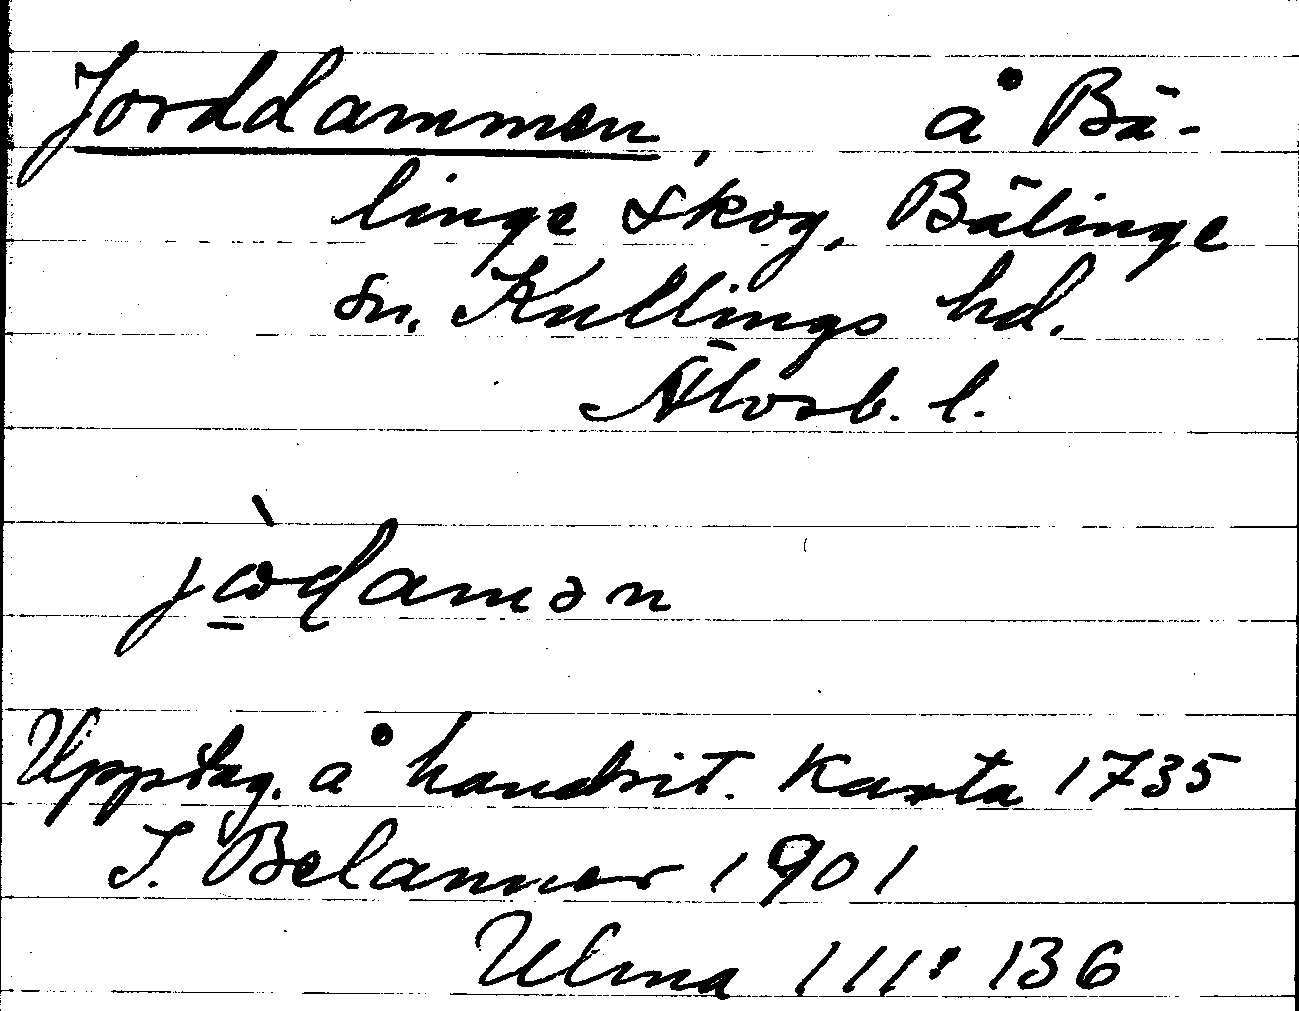 Jorddammen, å Bä-
linge skog, Bälinge
sn. Kullings hd.
Älvsb. l.
jὼdamən
Upptag. å handrit. Karta 1735
S. Belanner 1901
Ulma 111:136